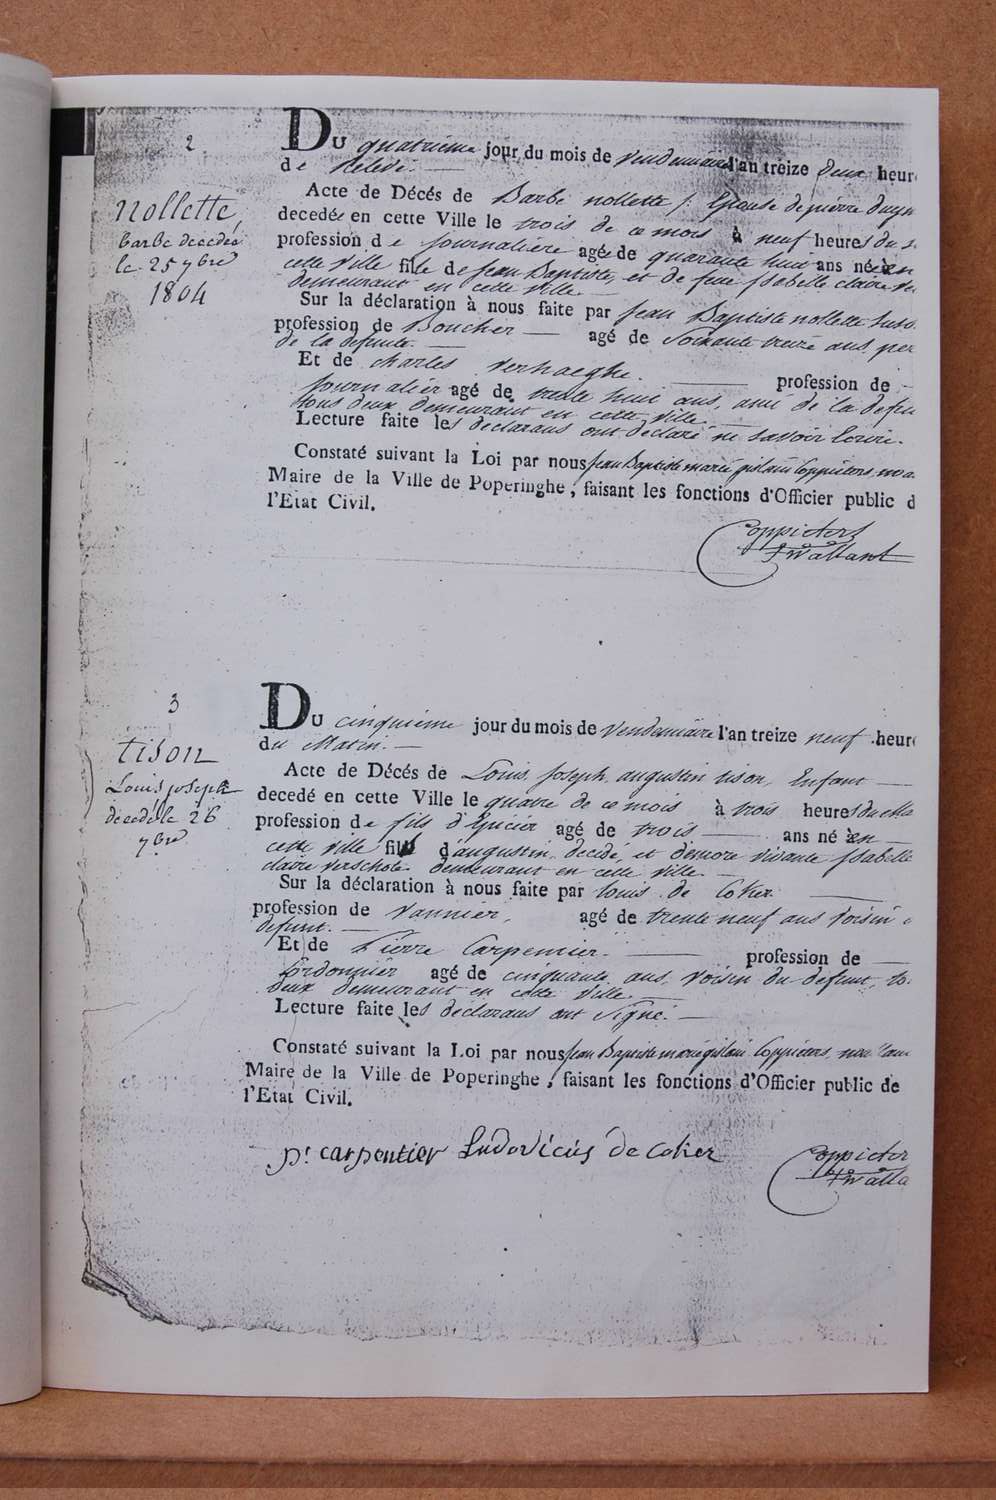 2
nollette,
barbe decedée
le 25 7bre
1804
Du quatrieme jour du mois de vendemiaire l'an treize deux heure
de Relevé.
Acte de Décés de Barbe nollette /: Epouse de pierre
decedée en cette Ville le trois de ce mois à neuf heures du
profession de journaliére agé de quarante huit ans né en
cette ville fille de Jean Baptiste, et de feue Isabelle claire
demeurant en cette ville.
Sur la déclaration à nous faite par Jean Baptiste nollette
profession de Boucher agé de Soixante treize ans per
de la defunte.
Et de charles verhaeghe. profession de
Journalier agé de trente huit ans, ami de la defu
tous deux demeurant en cette ville.
Lecture faite les déclarans ont déclaré ne savoir Ecrire.
Constaté suivant la Loi par nous Jean Baptiste marie gislain Coppieters,
Maire de la Ville de Poperinghe, faisant les fonctions d'Officier public d
l'Etat Civil.
Coppieters
3
tison
Louis joseph
décedé le 26
7bre
Du cinquieme jour du mois de Vendemiaire l'an treize neuf heure
du Matin.
Acte de Décés de Louis Joseph augustin tison, Enfant
decedé en cette Ville le quatre de ce mois à trois heures du
profession de fils d'Epicier agé de trois ans né en
cette ville fils d'augustin, decidé, et d'emore vivante Isabelle
claire verschote demeurant en cette ville.
Sur la déclaration à nous faite par Louis de Coker
profession de Vannier, agé de trente neuf ans Voisin
defunt.
Et de Pierre Carpentier. profession de
Cordonnier agé de cinquante ans, voisin du defunt, to
deux demeurant en cette ville.
Lecture faite les déclarans ont Signé.
Constaté suivant la Loi par nous Jean Baptiste marie gislain Coppieters,
Maire de la Ville de Poperinghe, faisant les fonctions d'Officier public de
l'Etat Civil.
pr carpentier Ludovicus de Coker Coppieter